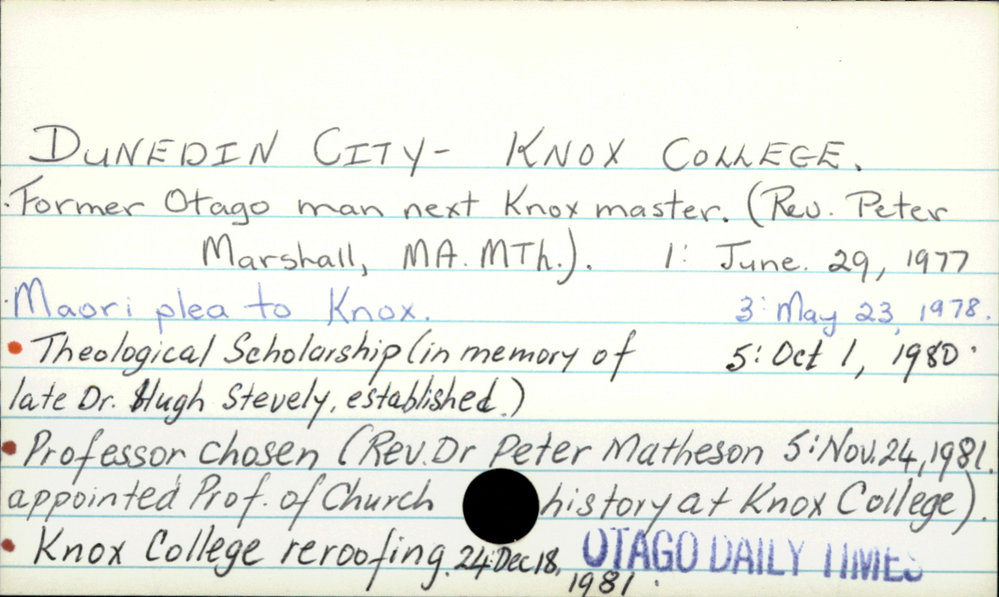 DUNEDIN CITY - KNOX COLLEGE.
Former Otago man next Knox master. (Rev. Peter
Marshall, MA. MTh.). 1: June. 29, 1977
Maori plea to Knox. 3: May 23, 1978.
• Theological Scholarship (in memory of 5: Oct 1, 1980.
late Dr. Hugh Stevely, established.)
• Professor chosen (Rev. Dr Peter Matheson 5: Nov. 24, 1981.
appointed Prof. of Church history at Knox College).
• Knox College reroofing. 24: Dec 18, 1981. OTAGO DAILY TIMES